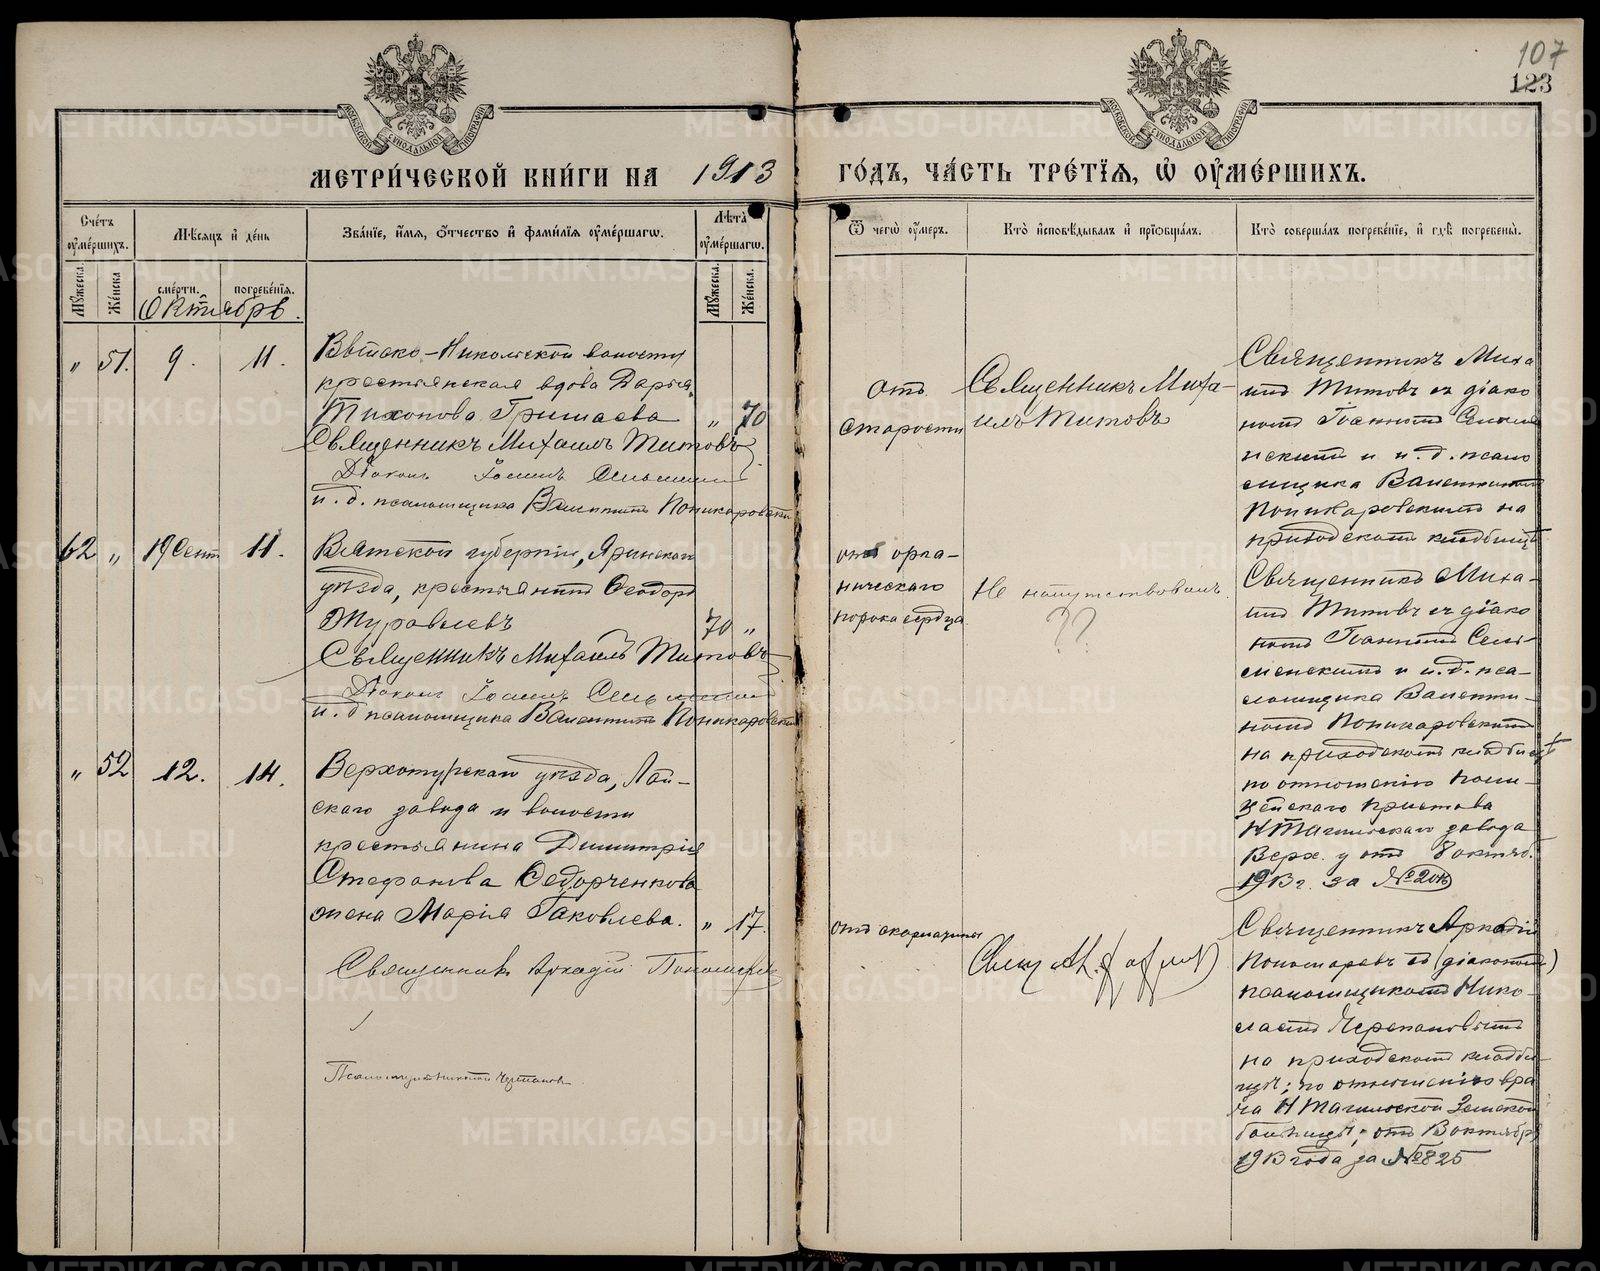 107
123
МОСКОВСКОЙ СѴНОДАЛЬНОЙ ТИПОГРАФІИ
МОСКОВСКОЙ СѴНОДАЛЬНОЙ ТИПОГРАФІИ
МЕТРИ́ЧЕСКОЙ КНИ́ГИ НА 1913
ГО́ДЪ, ЧА́СТЬ ТРЕ́ТЇѦ, Ѡ҆ ОУ҆МЕ́РШИХЪ.
Сче́тъ оу҆ме́ршихъ.
Мѣ́сѧцъ и҆ де́нь
Зва́нїе, и҆́мѧ, ѻ҆́тчество и҆ фами́лїѧ оу҆ме́ршагѡ.
Лѣ́та оу҆ме́ршагѡ.
Мꙋ́жеска.
Же́нска
сме́рти.
погребе́нїѧ.
Мꙋ́жеска.
Же́нска.
Ѿ чегѡ̀ оу҆́меръ.
Кто̀ и҆сповѣ́дывалъ и҆ прїѡбща́лъ.
Кто̀ соверша́лъ погребе́нїе, и҆ гдѣ̀ погребены̀.
Октябрь.
" 51. 9. 11.
крестьянская вдова Дарья
Тихонова Гришаева " 70
Священникъ Михаилъ Титовъ
Діаконъ Іоаннъ
и. д. псаломщика Валентинъ Поникаровскій
отъ
старости
Священникъ Миха-
илъ Титовъ
Священникъ Миха
илъ Титовъ съ діако
номъ Іоанномъ
и и. д. псало
мщика Валентиномъ
Поникаровскимъ на
приходскомъ кладбищѣ
62 " 19 Сент 11.
Вятской губерніи, Яранскаго
уѣзда, крестьянинъ Ѳеодоръ
Журавлевъ 70 "
Священникъ Михаилъ Титовъ
Діаконъ Іоаннъ
и. д псаломщика Валентинъ Поникаровскій
отъ орга-
ническаго
порока сердца
Не напутствованъ.
??
Священникъ Миха-
илъ Титовъ съ діако
номъ Іоанномъ
и и. д. пса-
ломщика Валенти-
номъ Поникаровскимъ
на приходскомъ кладбищѣ
по отношенію поли-
цейскаго пристава
НТагильскаго завода
Верх. у отъ 8 октяб.
1913 г. за №
" 52 12. 14.
Верхотурскаго уѣзда, Лай-
скаго завода и волости
крестьянина Димитрія
Стефанова Ѳедорченкова
жена Марія Іаковлева. " 17.
Священникъ Аркадій Пономаревъ
Псаломщикъ Николай Черепановъ
отъ скарлатины
Священникъ Аркадій
Пономаревъ съ (діакономъ)
псаломщикомъ Нико-
лаемъ Черепановымъ
на приходскомъ кладби-
щѣ; по отношенію вра
ча НТагильской Земской
больницы; отъ октября
1913 года за № 825
METRIKI.GASO-URAL.RU